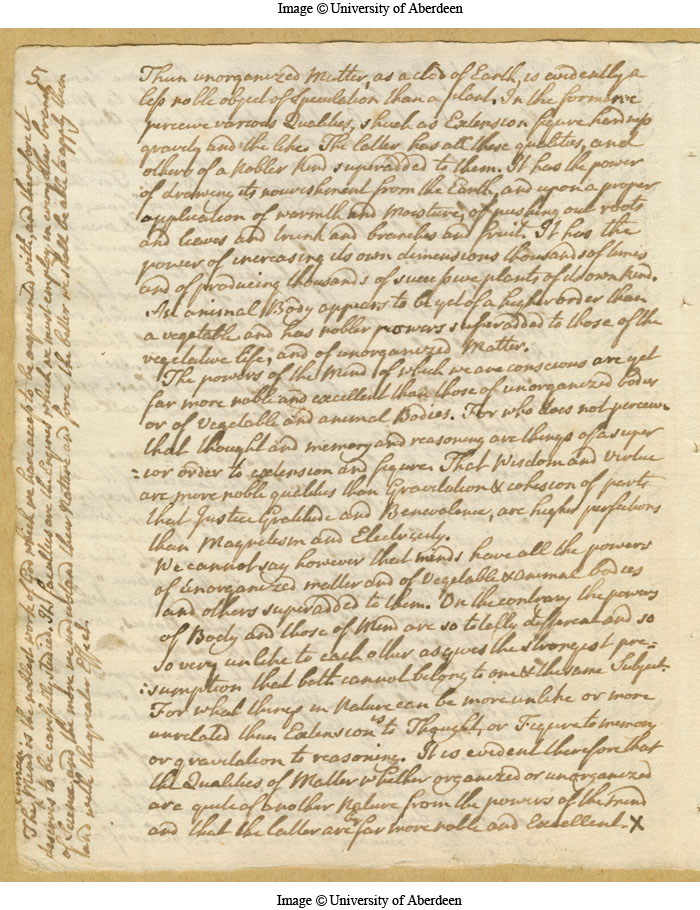 Image © University of Aberdeen
5
Thun unorganized Matter, as a clod of Earth, is evidently a
less noble object of Speculation than a plant. In the former we
perceive various Qualities, shuch as Extension figure hardness
gravity and the like. The latter has all these qualities, and
others of a Nobler Kind superadded to them. It has the power
of drawing its nourishment from the Earth, and upon a proper
application of warmth and Moisture, of pushing out roots
and leaves and trunk and branches and fruit. It has the
power of increasing its own dimensions thousands of times
and of producing thousands of successive plants of its own kind.
An animal Body appears to be yet of a higher order than
a vegetable and has nobler powers superadded to those of the
vegetative life, and of unorganized Matter.
The powers of the Mind of which we are conscious are yet
far more noble and excellent than those of unorganized bodies
or of Vegetable and animal Bodies. For who does not perceive
that thought and memory and reasoning are things of a super
=ior order to extension and figure. That Wisdom and Virtue
are more noble qualities than Gravitation & cohesion of parts
that Justice Gratitude and Benevolence, are higher perfections
than Magnetism and Electricity.
We cannot say however that minds have all the powers
of unorganized matter and of Vegetable & animal bodies
and others superadded to them. On the contrary the powers
of Body and those of Mind are so totally different and so
so very unlike to each other as gives the strongest pre=
:sumption that both cannot belong to one & the same Subject.
For what things in Nature can be more unlike or more
unrelated than Extension is to Thought, or Figure to memory
or gravitation to reasoning. It is evident therefore that
the Qualities of Matter whether organized or unorganized
are quite of another Nature from the powers of the mind
and that the latter are far more noble and Excellent. X
The human Mind is the noblest work of God which we have access to be acquainted with, and therefore it
deserves to be carefully studied. Its faculties are the Engines which we must employ in every other branch
of Science and the more we understand their Nature and force the better we shall be able to apply them
and with the greater Effect.
Image © University of Aberdeen